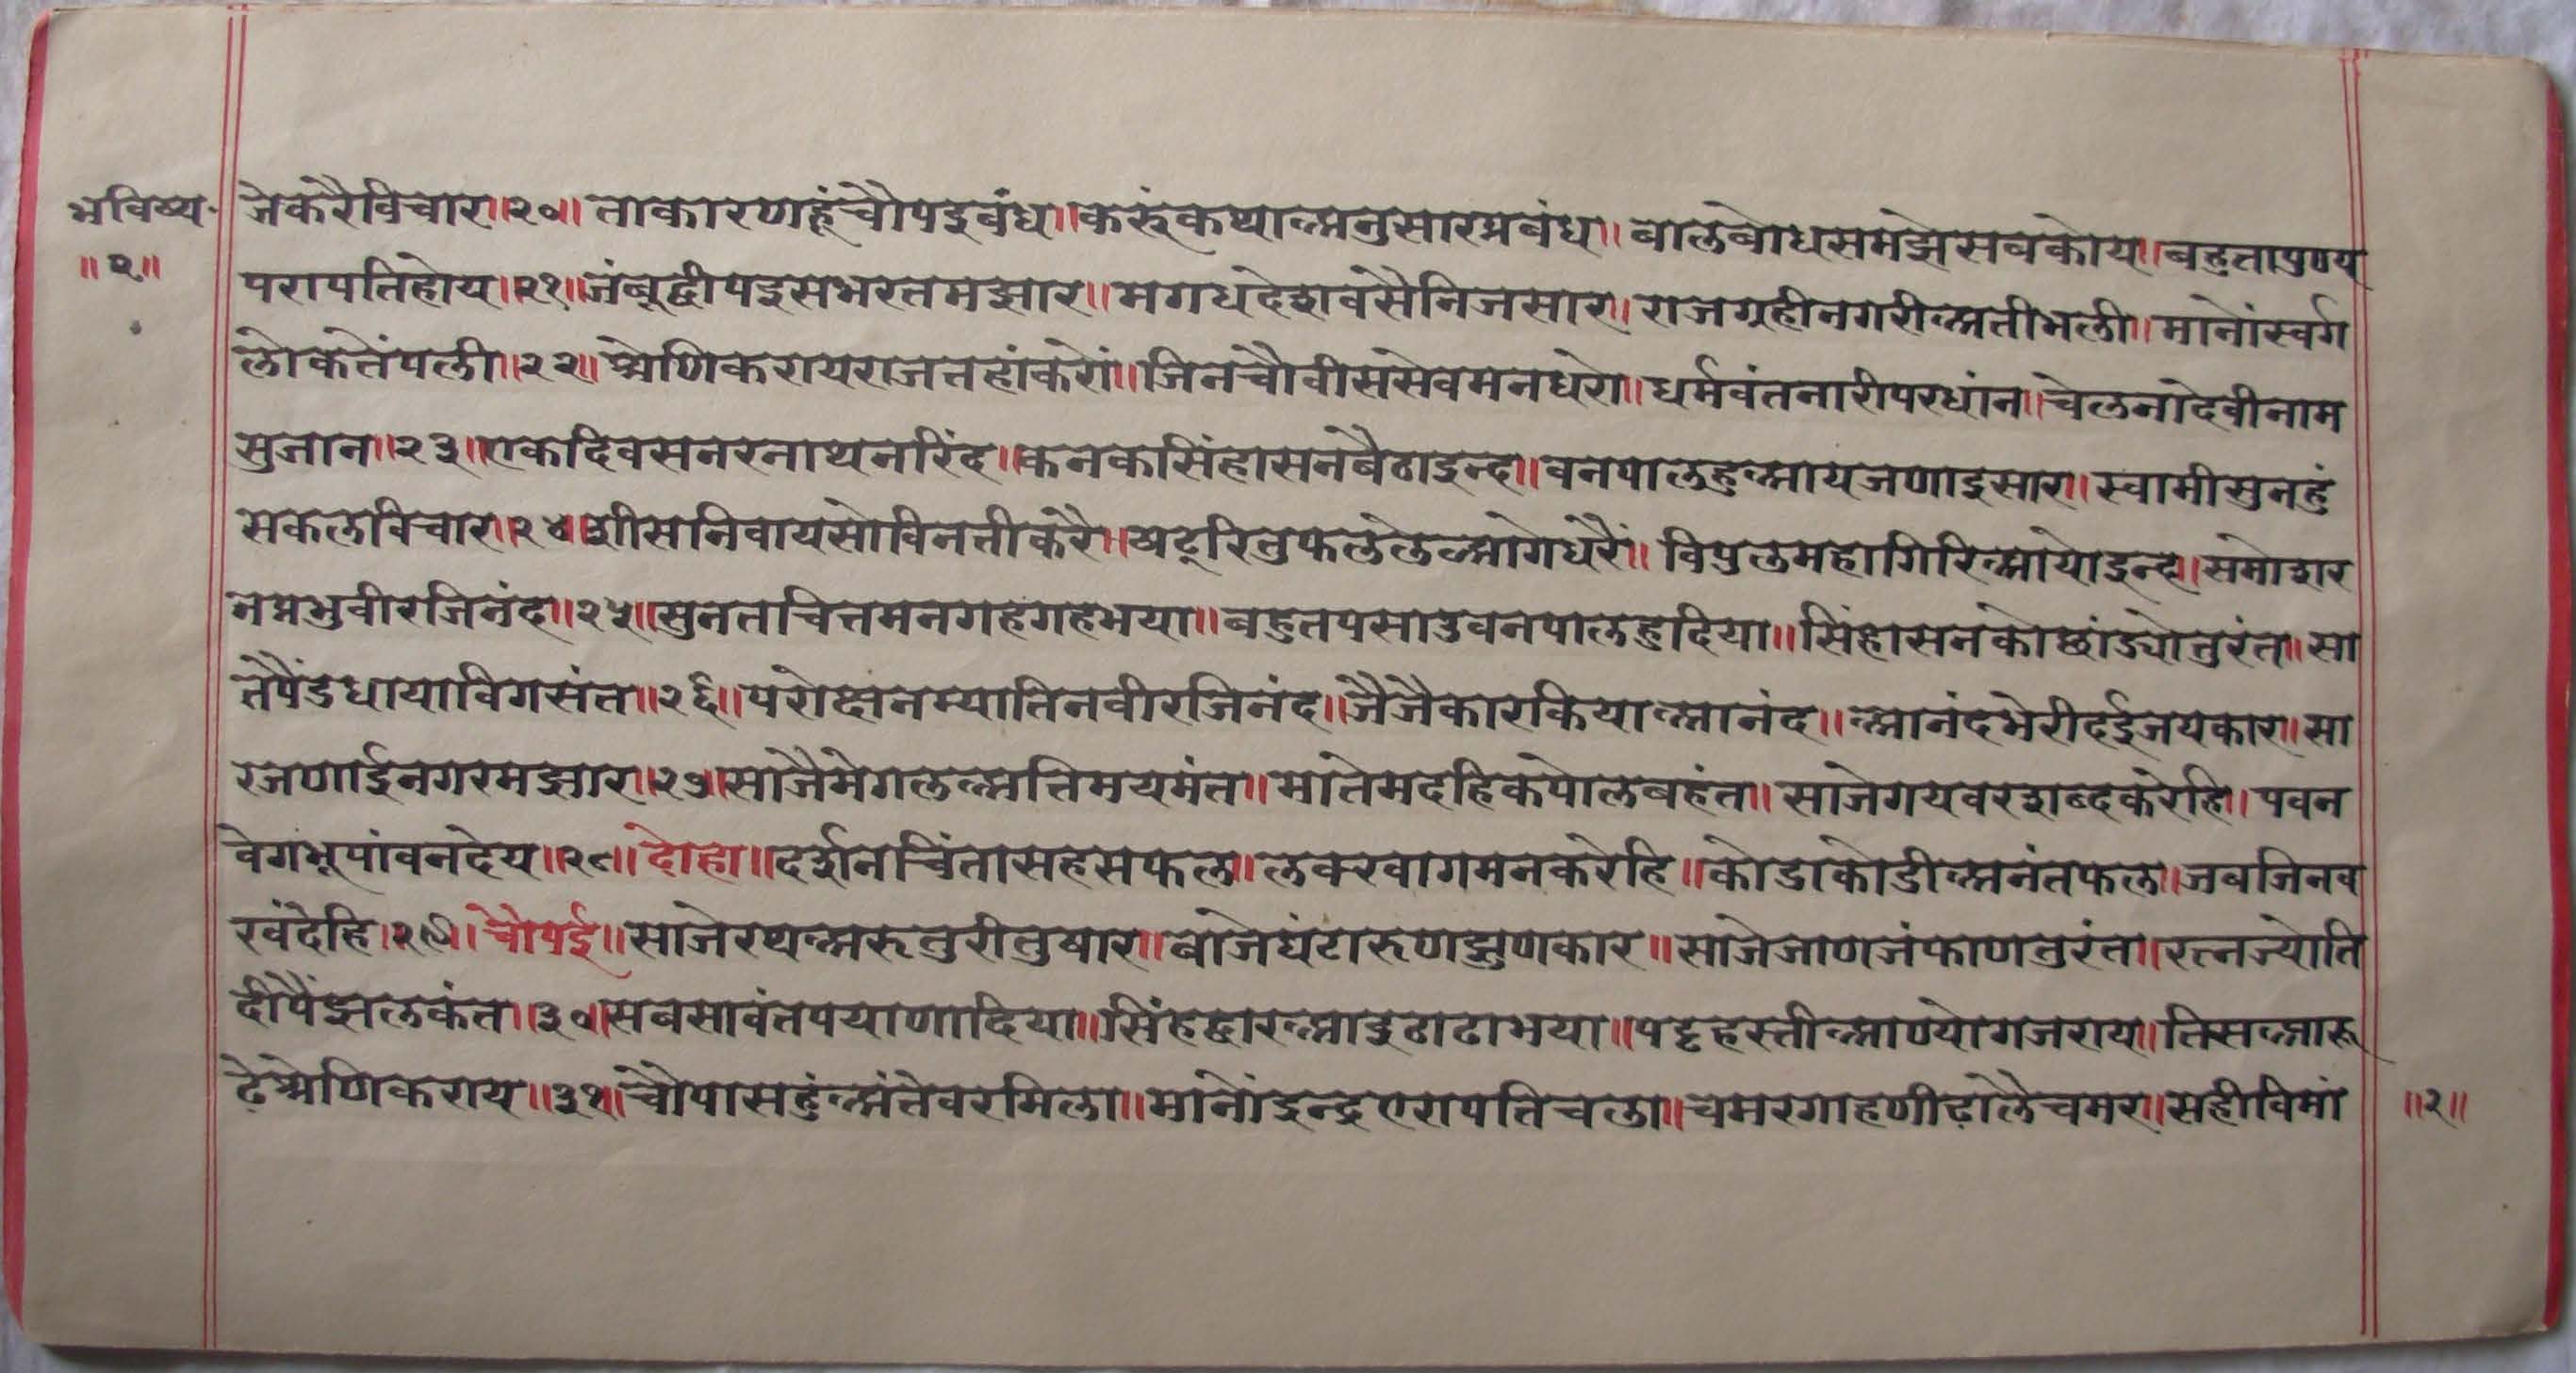 भविष्य॰
॥२॥
जेकरैविचार॥२०॥ ताकारणहूंचौपइबंध॥करूंकथाअनुसारप्रबंध॥ बालबोधसमझेसबकोय॥बहुतापुण्य
परापतिहोय॥२१॥जंबूद्वीपइसभरतमझार॥मगधदेशवसैनिजसार॥ राजगृहीनगरीअतीभली॥मानोंस्वर्ग
लोकतेंपली॥२२॥ श्रेणिकरायराजतहांकरों॥जिनचौवीससेवमनधरो॥ धर्मवंतनारीपरधांन॥चेलनादेवीनाम
सुजान॥२३॥एकदिवसनरनाथनरिंद॥कनकसिंहासनबैठाइन्द॥वनपालहुआयजणाइसार॥स्वामीसुनहुं
सकलविचार॥२४॥शीसनिवायसोविनतीकरै॥षट्रितुफललेलेआगेधरैं॥ विपुलमहागिरिआयोइन्द॥समोशर
नप्रभुवीरजिनंद॥२५॥सुनतचित्तमनगहगहभया॥बहुतपसाउवनपालहुदिया॥सिंहासनकोछांड्योतुरंत॥सा
तपैंडधायाविगसंत॥२६॥परोक्षनम्यातिनवीरजिनंद॥जैजैकारकियाआनंद॥आनंदभेरीदईजयकार॥सा
रजणाईनगरमझार॥२७॥साजैमेगलअत्तिमयमंत॥मातेमदहिकपोलबहंत॥ साजेगयवरशब्दकरेहि॥ पवन
वेगभूपांवनदेय॥२८॥ दोहा॥दर्शनचिंतासहसफल॥लक्खागमनकरेहि॥कोडाकोडीअनंतफल॥जबजिनव
रवंदेहि॥२९॥ चौपई॥साजेरथअरूतुरीतुषार॥बाजेघंटारूणझुणकार॥साजेजाणजंफाणतुरंत॥रत्नज्योति
दीपैंझलकंत॥३०॥सबसावंतपयाणादिया॥सिंहद्वारआइठाढाभया॥पट्टहस्तीआण्योगजराय॥तिसआरू
ढ़ेश्रेणिकराय॥३१॥चौपासहुंअंतेवरमिला॥मानोंइन्द्रएरापतिचला॥चमरगाहणीढ़ोलैचमर॥सहीविमां
॥२॥